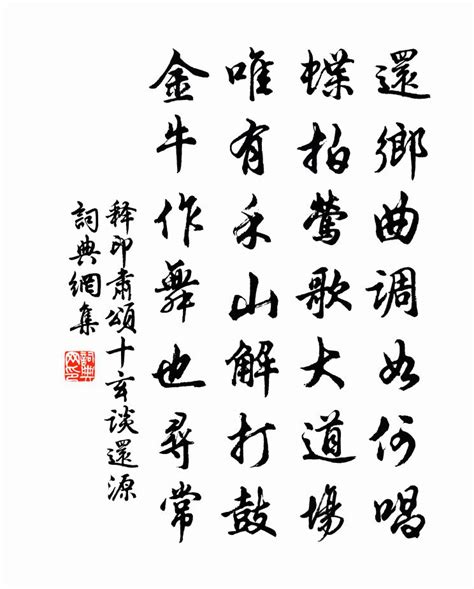 還鄉曲调如何唱
蝶拍鶯歌大道場
唯有禾山解打鼓
金牛作舞也尋常
释印肃頌十玄談還源
詞典網集
詞典
网印